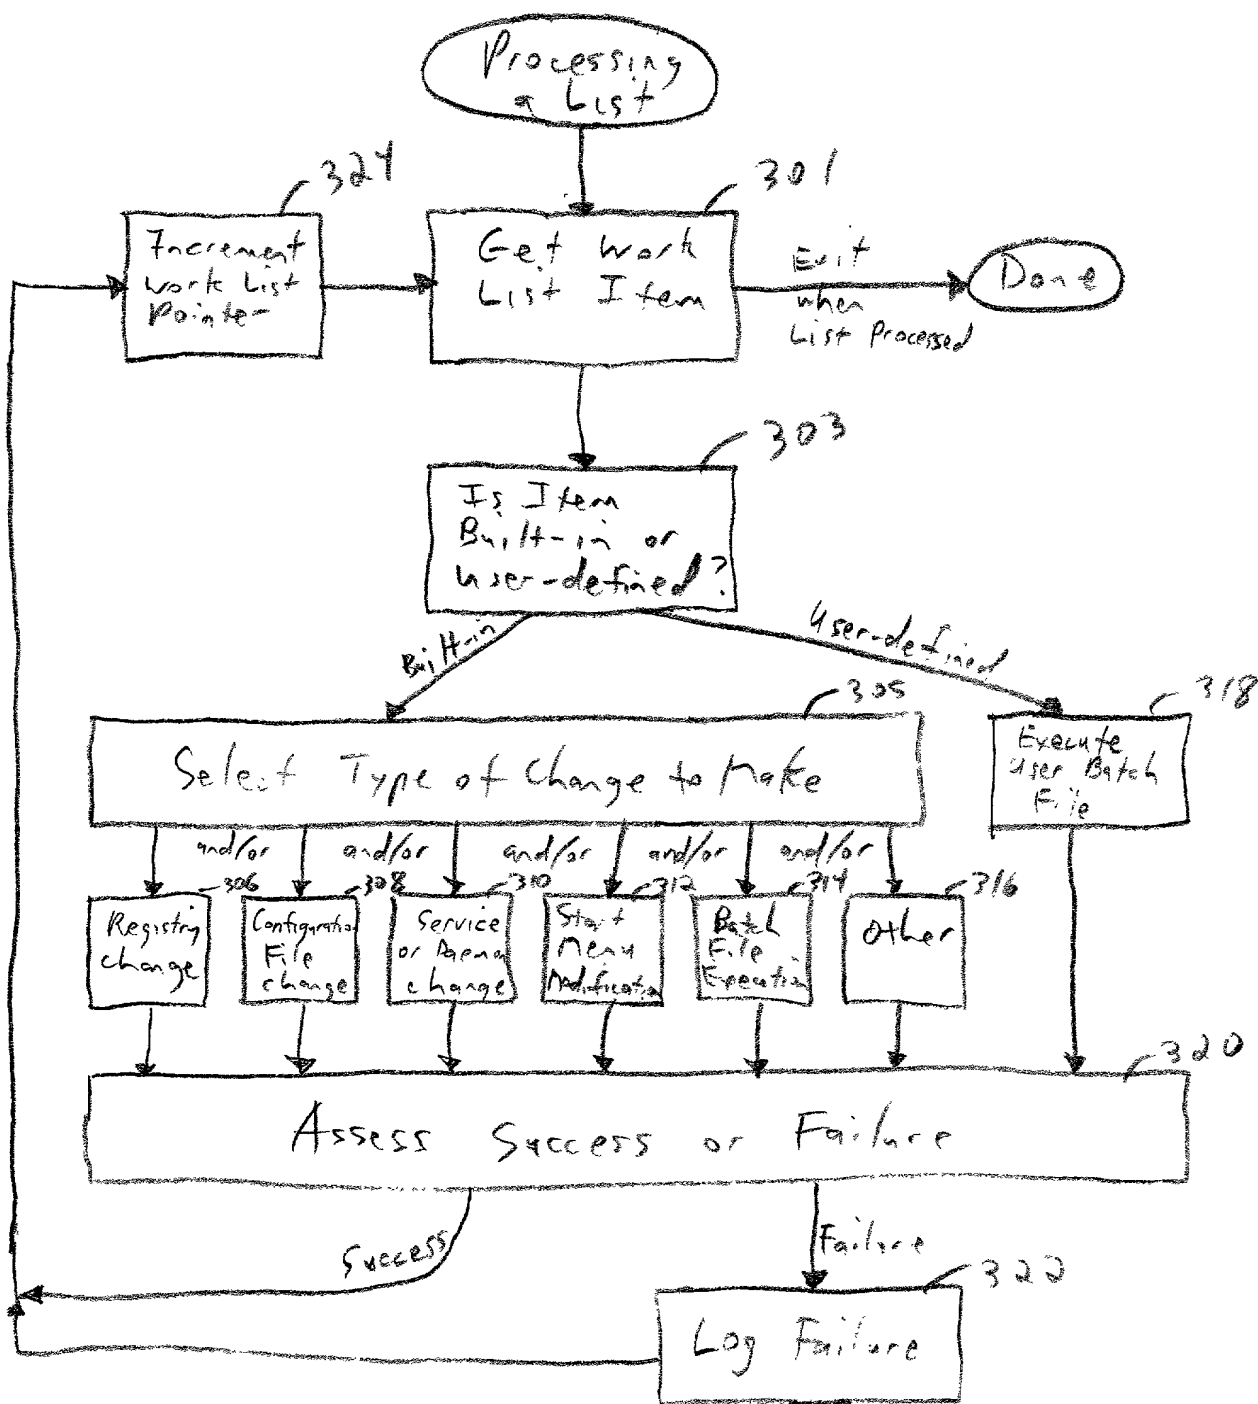 Processing
a List
324
301
Increment
Work List
Pointer
Get Work
List Item
Exit
when
List Processed
Done
303
Is Item
Built-in or
User-defined?
Built-in
User-defined
305
318
Select Type of Change to Make
Execute
User Batch
File
and/or
and/or
and/or
and/or
and/or
306
308
310
312
314
316
Registry
Change
Configuration
File
change
Service
or Daemon
change
Start
Menu
Modification
Batch
File
Execution
Other
320
Assess Success or Failure
Success
Failure
322
Log Failure